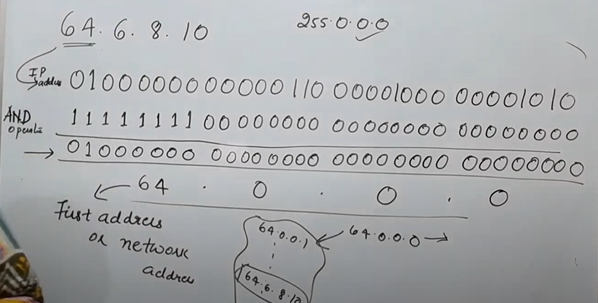 64. 6. 8. 10
255.0.0.0
IP
address
01000000 00000110 00001000 00001010
AND
11111111 00000000 00000000 00000000
01000000 00000000 00000000 00000000
64 . 0 . 0 . 0
First address
or network
address
64.0.0.1
64.0.0.0
64.6.8.10